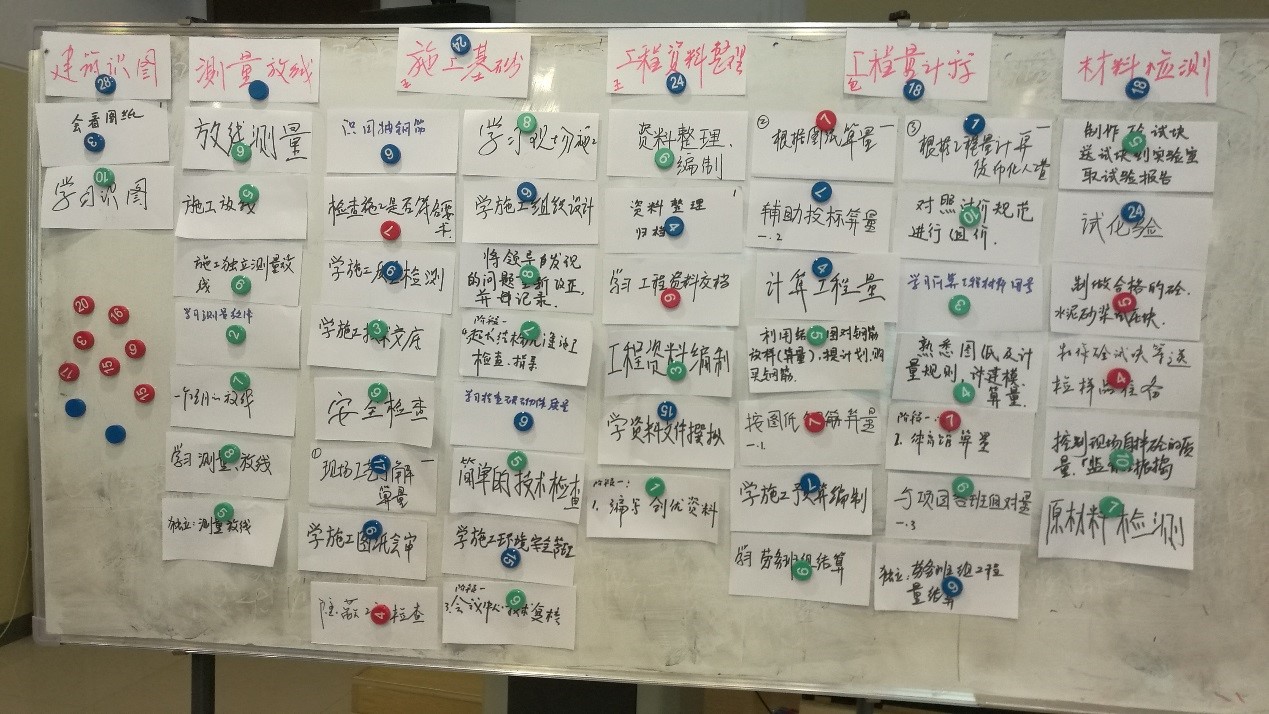 建筑识图
28
会看图纸
3
学习识图
10
20
16
3
6
15
17
15
测量放线
放线测量
6
施工放线
5
施工独立测量放
线
9
学习测量
2
一个月放线
7
学习测量、放线
8
独立:测量放线
5
施工基础
24
识图抽钢筋
6
检查施工是否符合要
求
7
学施工 检测
9
学施工技术交底
3
安全检查
6
①
现场工艺了解一
算量
17
学施工图纸会审
6
检查
4
学习现场施工
8
学施工组织设计
6
将领导发现
的问题 改正,
并做记录.
8
阶段一
检查.指导
7
6
简单的技术检查
5
学施工环境安全管理
15
阶段一
3.会议 技术复核
6
工程资料整理
24
资料整理、
编制
9
资料整理
归档
4
学习工程资料交档
6
工程资料编制
3
学资料文件撰拟
15
阶段一:
1.编写创优资料
1
工程量计算
18
②
根据图纸算量一
7
辅助投标算量
一.2
7
计算工程量
4
利用 图对钢筋
放样(算量).提计划,购
买钢筋.
5
按图纸钢筋算量
一.1
7
学施工预算编制
7
学习劳务班组结算
9
③
根据工程量计算一
货币化人工费
1
对照计价规范
进行组价.
10
学习计算工程材料用量
3
熟悉图纸及计
量规则,并建模.
算量.
4
阶段一:
算量
7
与项目各班组对量
一.3
6
独立:劳务班组工程
量结算
6
材料检测
18
制作砼试块
送试块到实验室
取试验报告
5
试化验
24
制做合格的砼.
水泥砂浆试块.
5
制作砼试块等送
检样品准备
4
控制现场自拌砼的质
量.
10
原材料检测
1